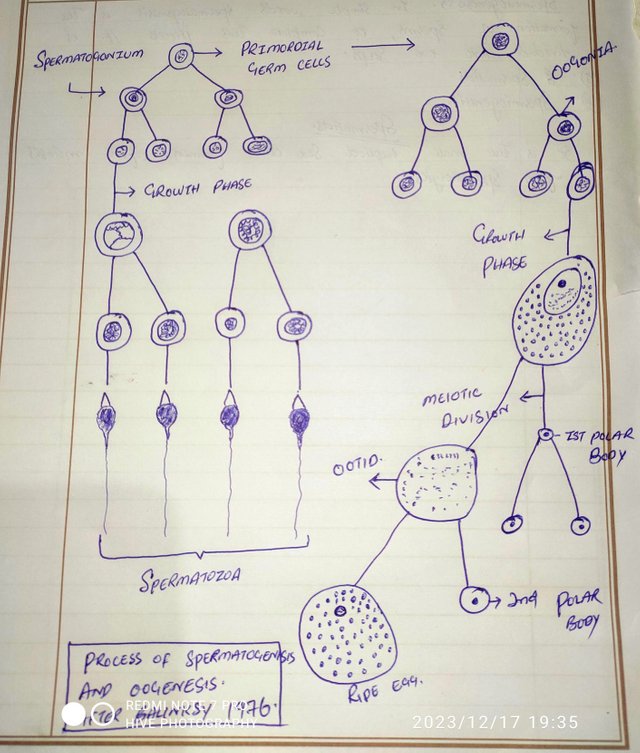 SPERMATOGONIUM
PRIMORDIAL
GERM CELLS
OOGONIA.
GROWTH PHASE
GROWTH
PHASE
MEIOTIC
DIVISION
IST POLAR
BODY
OOTID.
SPERMATOZOA
2nd POLAR
BODY
RIPE EGG.
PROCESS OF SPERMATOGENISIS
AND OOGENESIS.
1976.
REDMI NOTE 7 PRO
HIVE PHOTOGRAPHY
2023/12/17 19:35